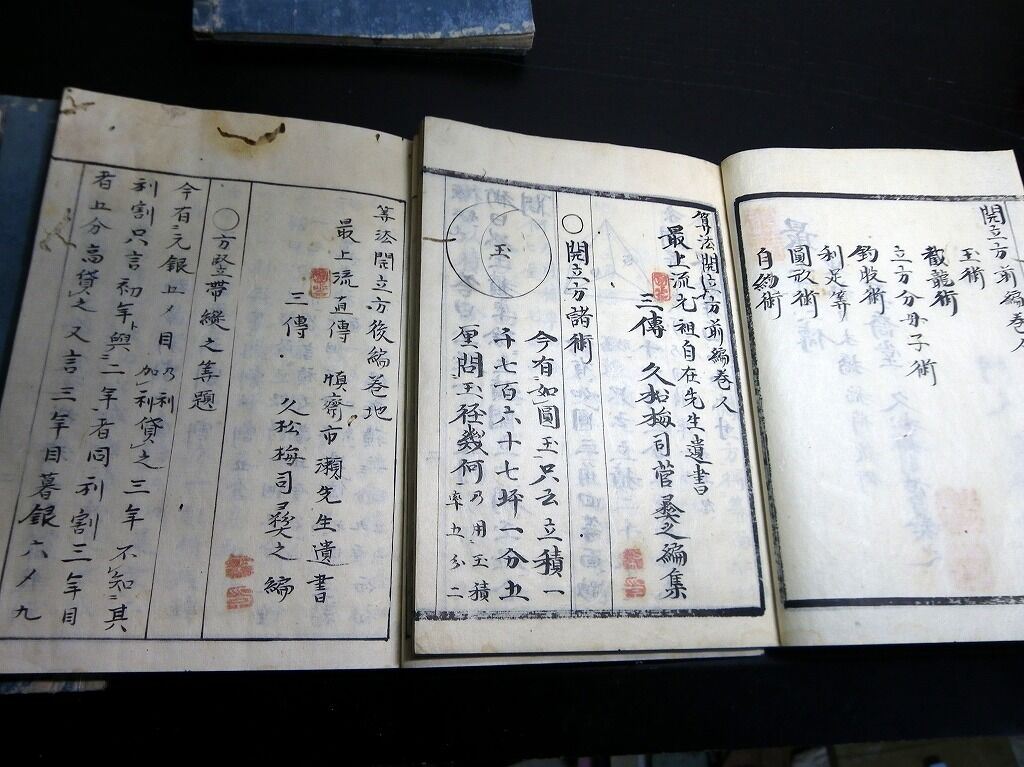 開立方前編巻
玉術
截籠術
立方分母子術
釣股術
利足筭
圓形術
自約術
算法開立方前編巻人
最上流元祖自在先生遺書
三傳 久松梅司菅彜之編集
○開立方諸術
今有如圓玉只云立積一
千七百六十七坪一分五
厘問玉徑幾何 乃用玉積率五分二
玉
筭法開立方後編巻地
最上流直傳 順齋市瀬先生遺書
三傳 久松梅司彜之編
○方竪帶縱之筭題
今有元銀五〆目 乃利加利貸之三年 不知其
利割只言初年ト與二年者同利割三年目
者五分高貸之又言三年目暮銀六〆九